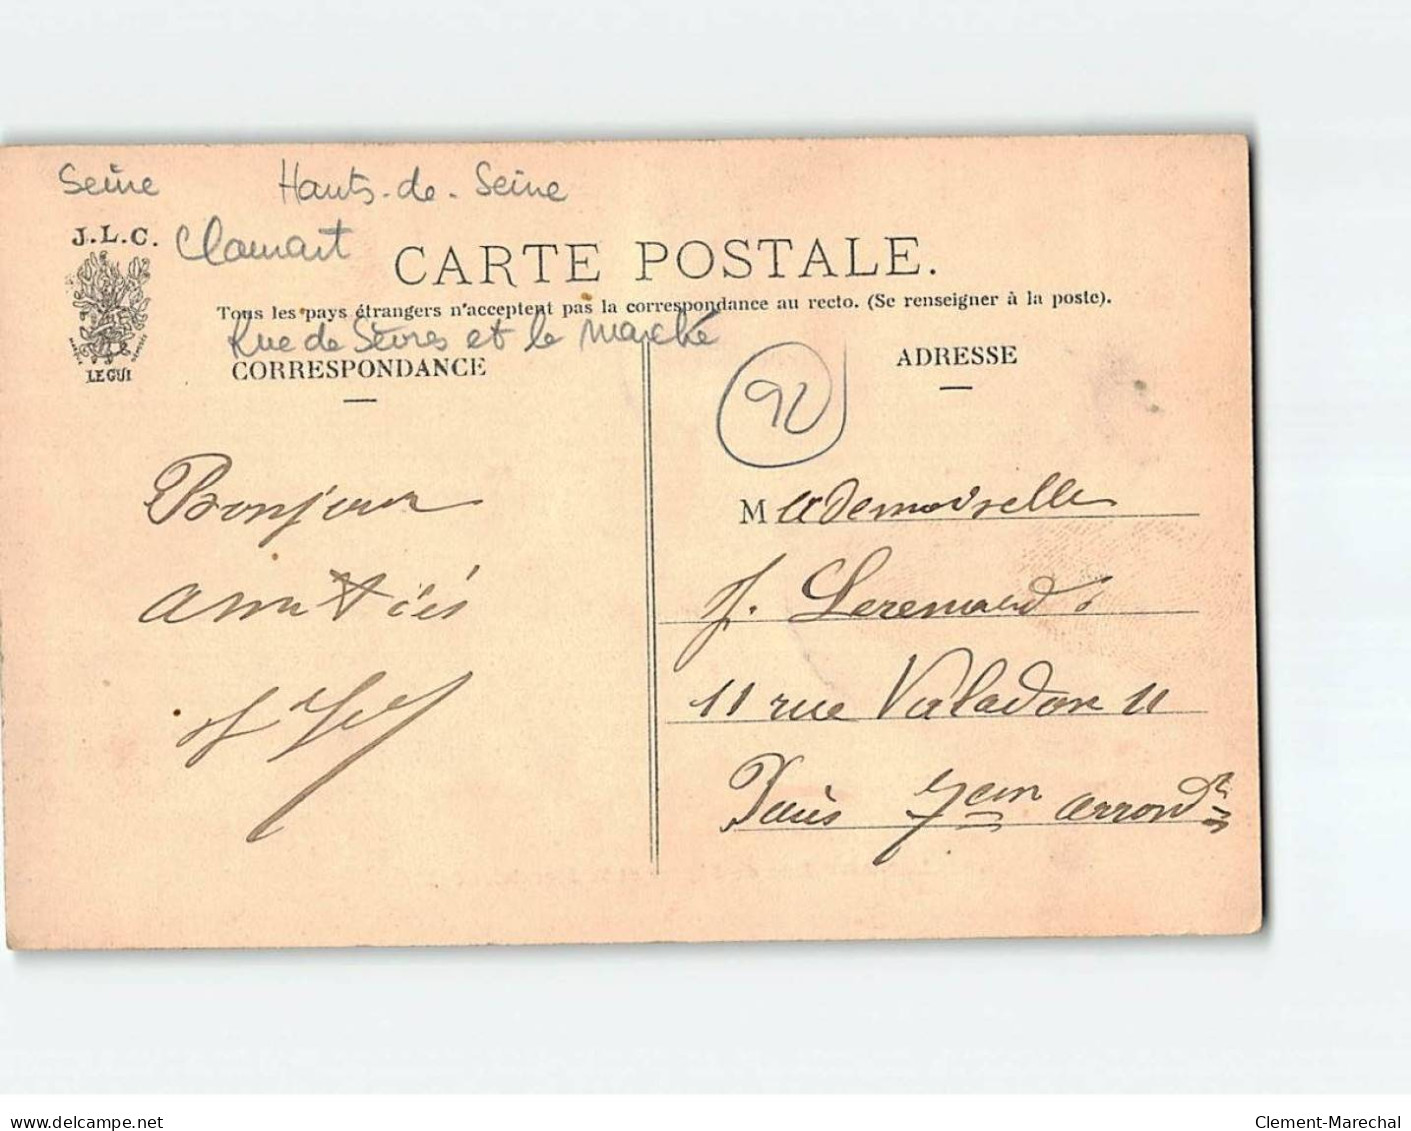 Seine Hauts-de-Seine
J.L.C. Clamart
CARTE POSTALE.
Tous les pays étrangers n'acceptent pas la correspondance au recto. (Se renseigner à la poste).
Rue de Sèvres et le marché
LE GUI
CORRESPONDANCE
Bonjour
amitiés
ADRESSE
92
Mademoiselle
J.
11 rue Valadon 11
Paris 7em arrondt
www.delcampe.net
Clement-Marechal